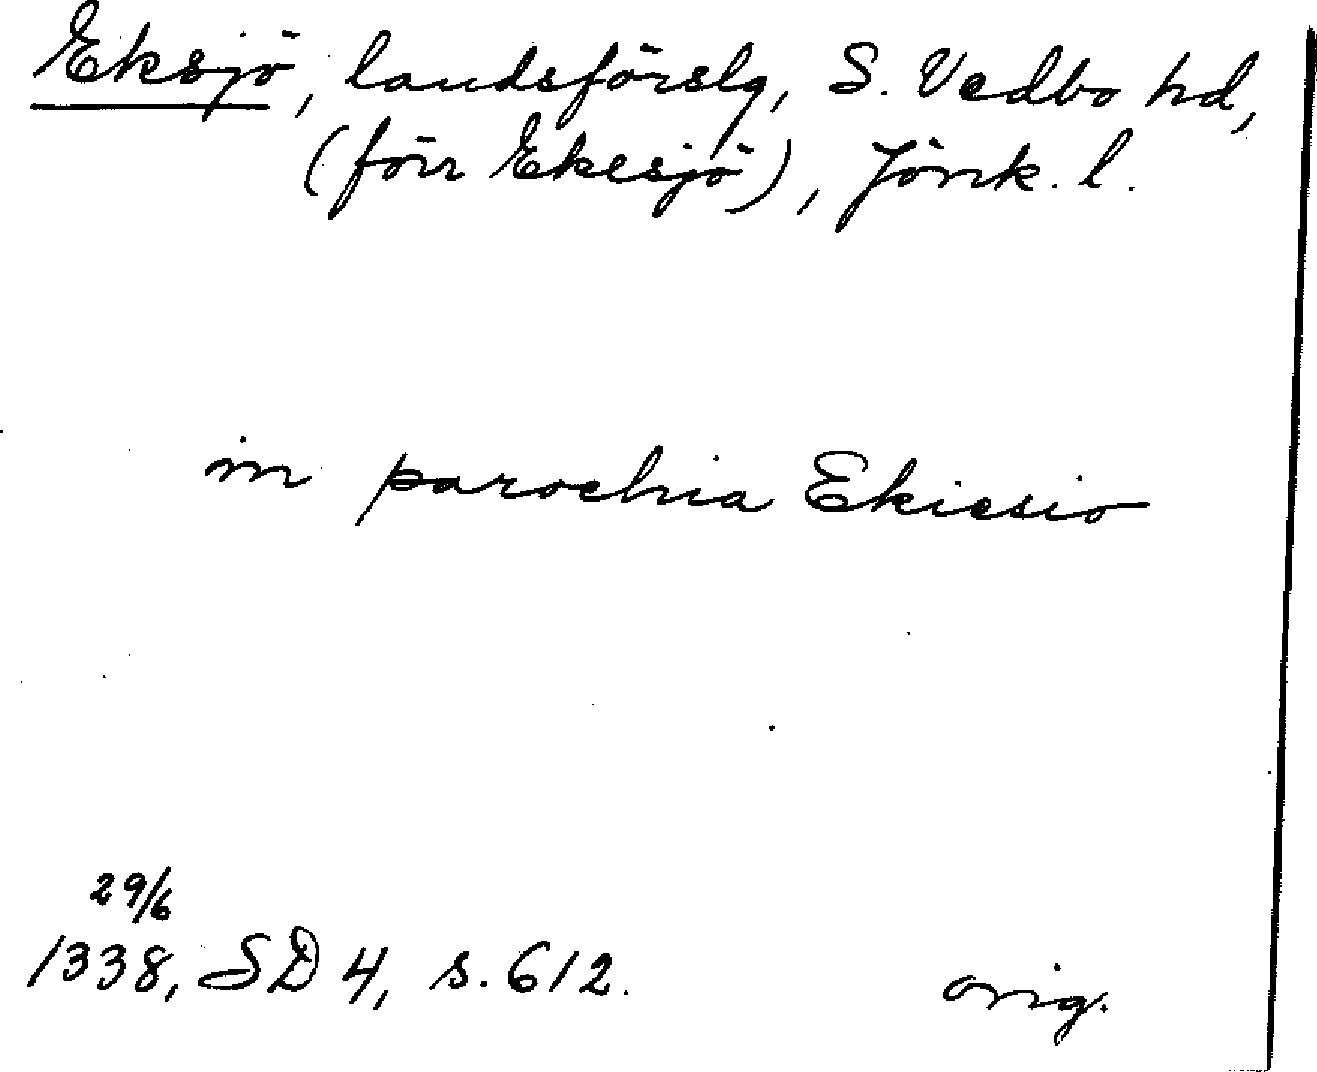 Eksjö, landsförslg, S. Vedbo hd,
(förr Ekesjö), Jönk. l.
in parochia Ekiesio
29/6
1338, SD 4, s. 612.
orig.